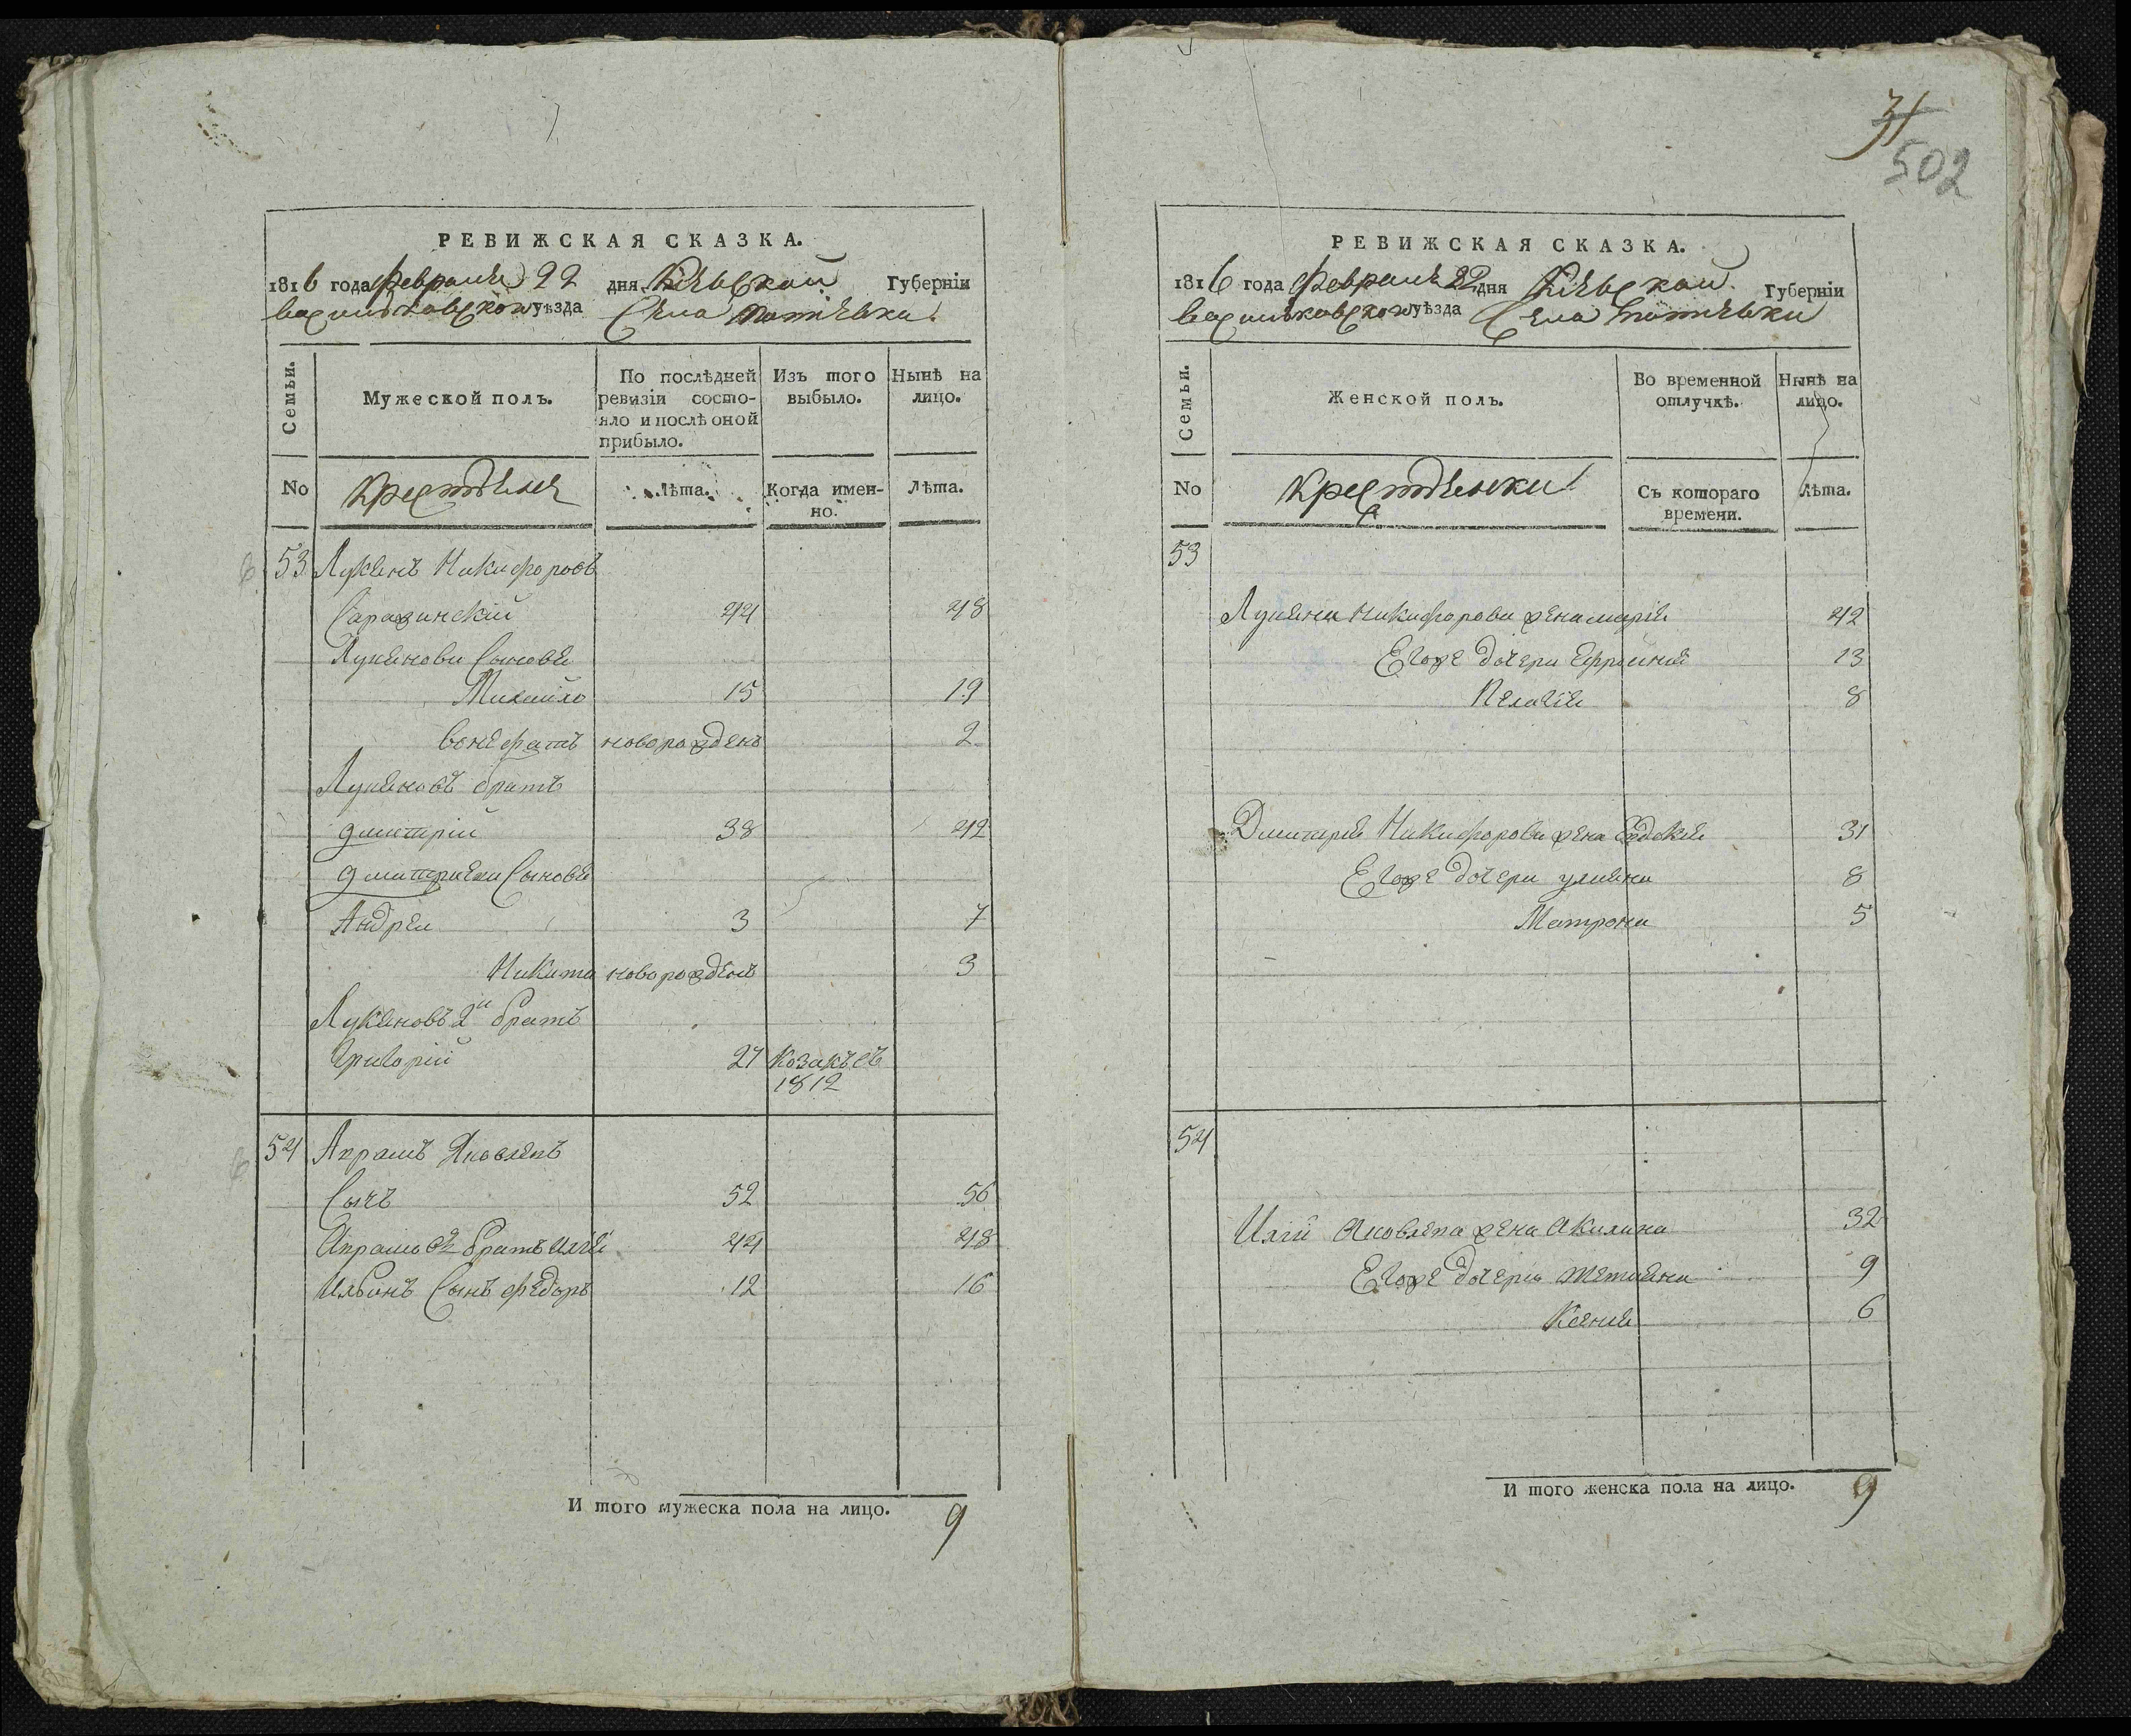 РЕВИЖСКАЯ СКАЗКА.
1816 года Февраля 22 дня Кіевской Губерніи
васильковского уѣзда Села
Семьи.
Мужеской полъ.
По послѣдней ревизіи состояло и послѣ оной прибыло.
Изъ того выбыло.
Нынѣ на лицо.
No
Крестьяне
Лѣта.
Когда именно.
Лѣта.
53 Лукянъ Никифоровъ
Саражинскій 44 48
Лукянови Сыновья
Михайло 15 19
новорожденъ 2
Лукяновъ братъ
дмитрій 38 42
дмитриеви Сыновья
Андреи 3 7
Никита новорожденъ 3
Лукяновъ 2й братъ
Григорій 27 Козакъ съ
1812
54 Апрамъ Яковлевъ
Сычъ 52 56
братъ 44 48
Ильинъ Сынъ федоръ 12 16
И того мужеска пола на лицо. 9
31
502
РЕВИЖСКАЯ СКАЗКА.
1816 года Февраля 22 дня Кіевской Губерніи
васильковского уѣзда Села
Семьи.
Женской полъ.
Во временной отлучкѣ.
Нынѣ на лицо.
No
Крестьянки
Съ котораго времени.
Лѣта.
53
Лукяна Никифорова жена марія 42
Егоже дочери 13
Пелагія 8
Дмитрія Никифорова жена Евдокія 31
Егоже дочери уляяна 8
Матрона 5
54
Иліи Яковлева жена Акилина 32
Егоже дочери 9
Ксения 6
И того женска пола на лицо. 9